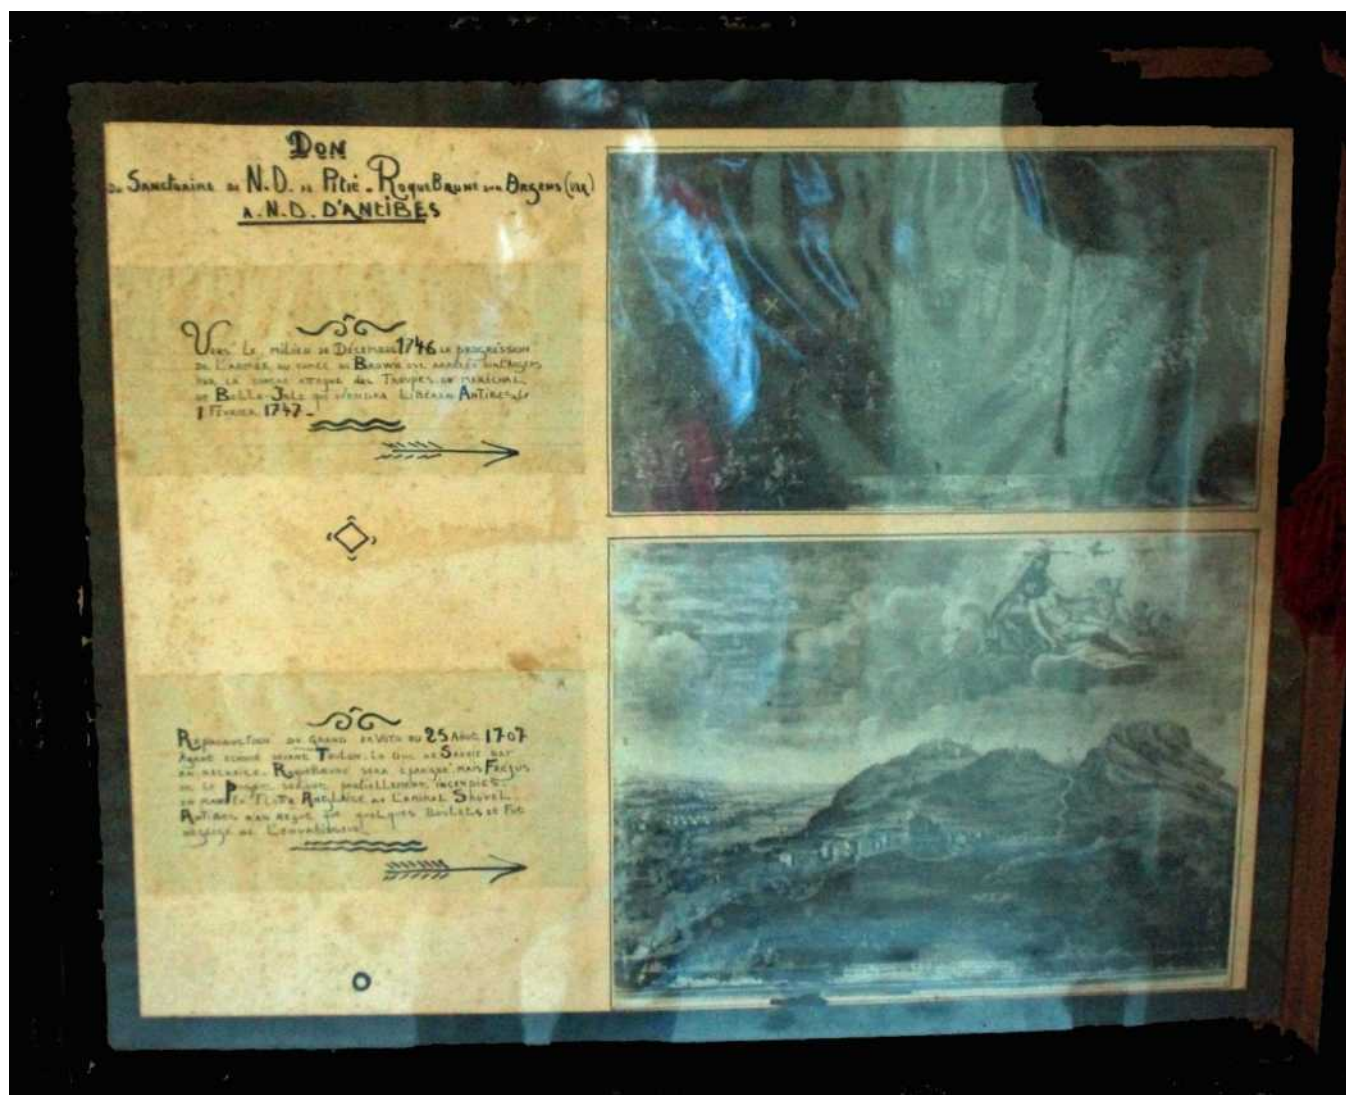 DON
du SANCTUAIRE de N.D. de PITIÉ - ROQUEBRUNE sur ARGENS (VAR)
A. N.D. D'ANTIBES
VERS LE MILIEU DE DÉCEMBRE 1746 LA PROGRESSION
DE L'ARMÉE DU COMTE DE BROWN EST ARRÊTÉE
PAR LA attaque des TROUPES du MARÉCHAL
DE BELLE-ISLE QUI VIENDRA LIBÉRER ANTIBES LE
1 FÉVRIER 1747 -
REPRODUCTION DU GRAND EX VOTO DU 25 AOUT 1707
AYANT ECHOUÉ DEVANT TOULON. LE DUC DE SAVOIE BAT
EN RETRAITE. ROQUEBRUNE SERA EPARGNÉ MAIS FREJUS
ET LE PUGET SERONT PARTIELLEMENT INCENDIÉS.
LA FLOTTE ANGLAISE DE L'AMIRAL SHOVEL.
ANTIBES N'AS REÇUE QUE QUELQUES BOULETS ET FUT
NÉGLIGÉ DE L'ENVAHISSEUR